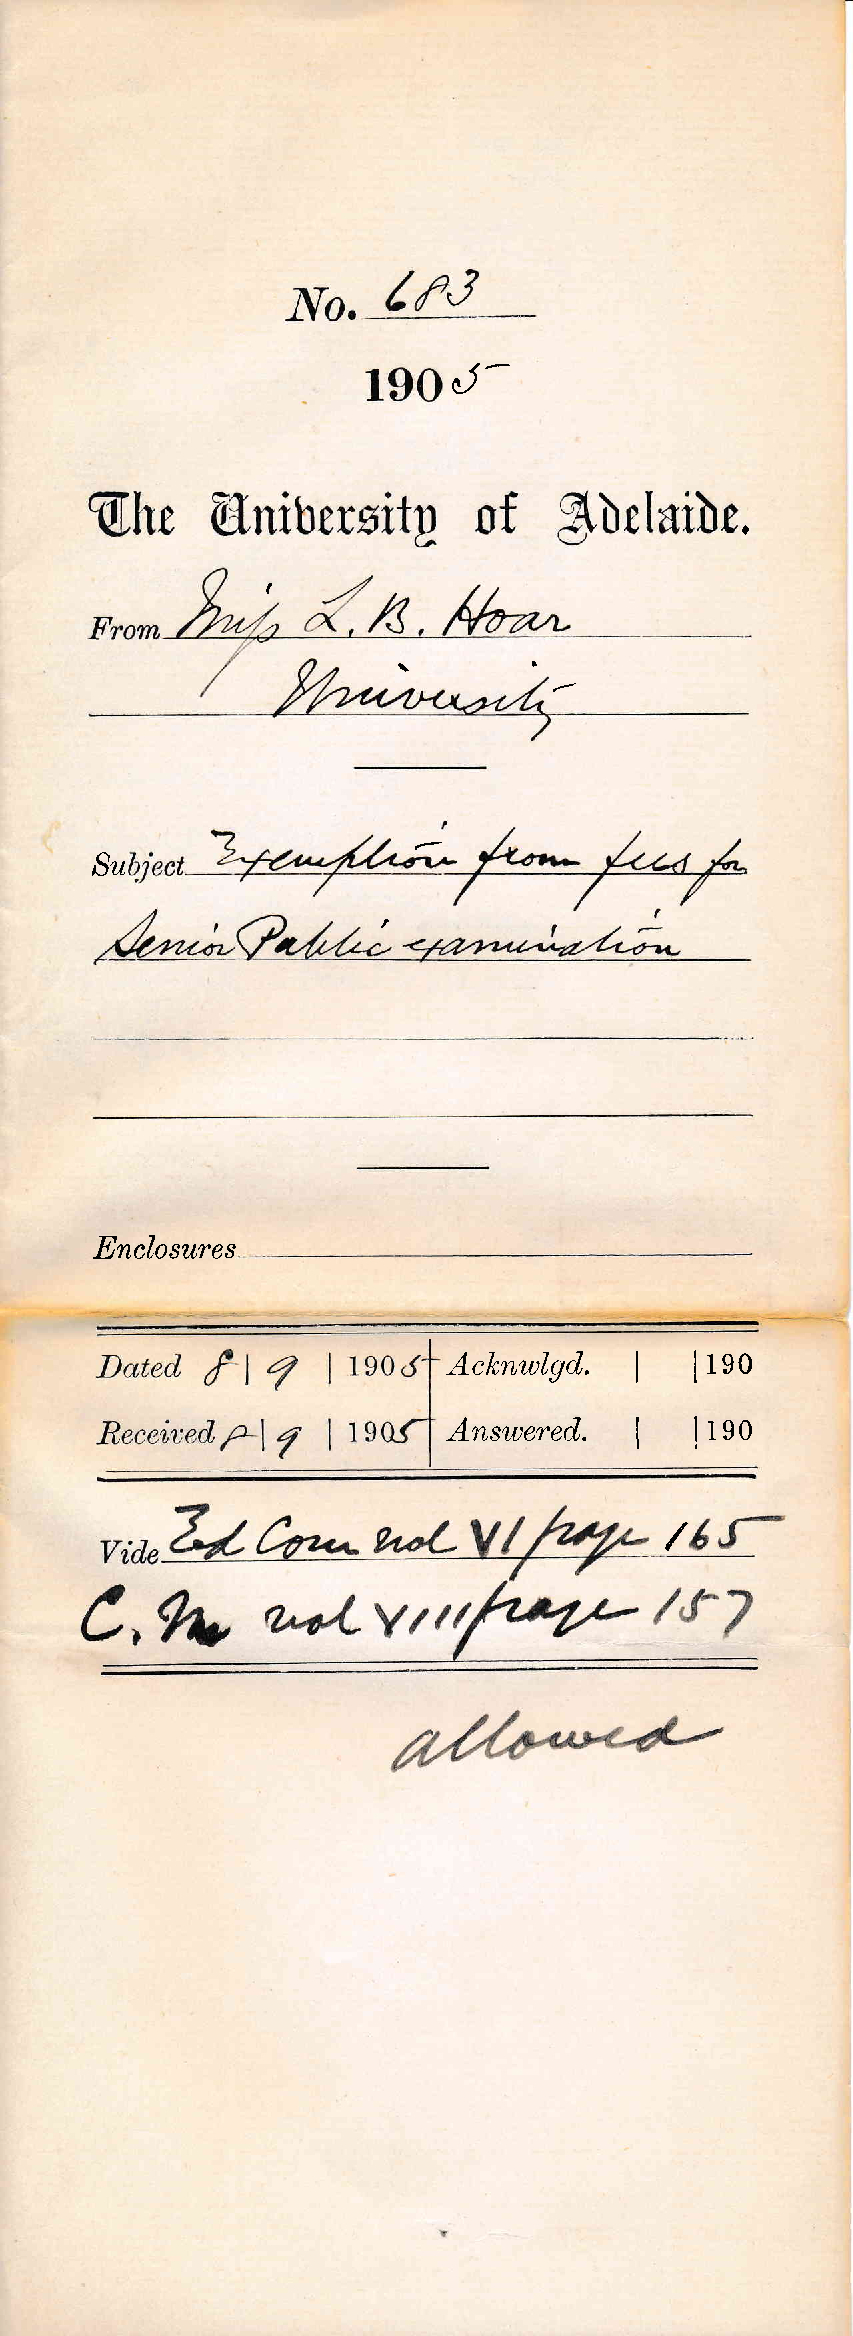 No. 683
1905
The University of Adelaide.
From Miss L. B. Hoar
University
Subject Exemption from fees for
Senior Public examination
Enclosures
Dated 8 | 9 | 1905 Acknwlgd. | | 190
Received 8 | 9 | 1905 Answered. | | 190
Vide Ed Com vol VI page 165
C. M vol VIII page 157
allowed